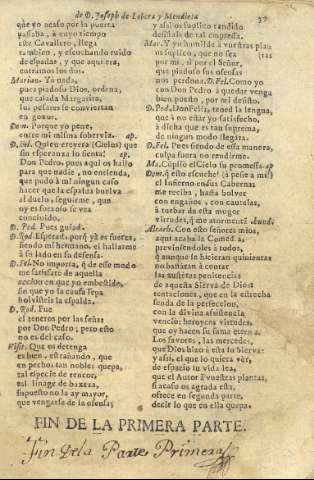 de D. Joseph de Lobera y Mendieta
que yo nesio por la puerta
passaba, à cuyo tiempo
este Cavallero, llega
tambien, y escuchando ruido
de espadas, y que aqui era,
entramos los dos.
Marian. Ya todo,
pues piadoso Dios, ordena,
que casada Margarita,
sus pesares se conviertan
en gozos.
Dem. Porque yo pene,
entre mi misma sobervia. ap.
D. Gil. Quien creyera (Cielos) que
sin esperanza lo sienta! ap.
Don Pedro, pues aqui os hallo
para que nadie, no entienda,
que pudo à mi ningun caso
hacer que la espalda buelva
al duelo, seguirme, que
oy es forzoso se vea
concluido.
D. Ped. Pues guiad.
D. Rod. Esperad, porq̃ yà es fuerza,
siendo mi hermano, el hallarme
à su lado en su defensa.
D. Fel. No importa, q̃ de esse modo
me satisface de aquella
accion en que yo embestido,
sin que yo la causa sepa
bolvisteis la espalda.
D. Rod. Fue
el teneros por las señas
por Don Pedro; pero esto
no es del caso.
Visit. Que os detenga
es bien, estrañando, que
en pechos tan nobles quepa,
tal especie de rencor,
tal linage de baxeza,
supuesto no la ay mayor,
que vengarse de la ofensa;
y assi os suplico rendido
desistais de tal empressa.
Mar. Y yo humilde à vuestras plan
os suplico, que no sea (tas
por mi, si por el Señor,
que piadoso sus ofensas
nos perdona. D. Fel. Como yo
con Don Pedro à quedar venga
bien puesto, por mi desisto.
D. Ped. Don Felix, tened la lengua,
que à no estar yo satisfecho,
à dicha que es tan suprema,
de ningun modo llegara.
D. Fel. Pues siendo de essa manera,
culpa fuera no rendirme.
Ma. Cùplió el Cielo su promessa. ap
Dem. q̃ esto escuche! (à pese à mi)
el Infierno en sus Cabernas
me reciba, hasta bolver
con engaños, con cautelas,
à torbar de esta muger
virtudes, q̃ me atormenta. hundi.
Alexob. Con esto señores mios,
aqui acaba la Comedia,
previniendoles à todos,
que aunque se hicieran quinientas
no bastaran à contar
las austeras penitencias
de aquesta Sierva de Dios:
tentaciones, que en la estrecha
senda de la perfeccion,
con la divina assistencia
venciò; heroycas virtudes,
que oy hacen su fama eterna.
Los favores, las mercedes,
que Dios hizo à esta su Sierva:
y assi, el que lo quiera vèr,
de espacio su vida lea,
que el Autor à vuestras plantas,
si acaso os agrada esta,
ofrece en segunda parte,
decir lo que en ella quepa.
FIN DE LA PRIMERA PARTE.
Fin De la Parte Primera